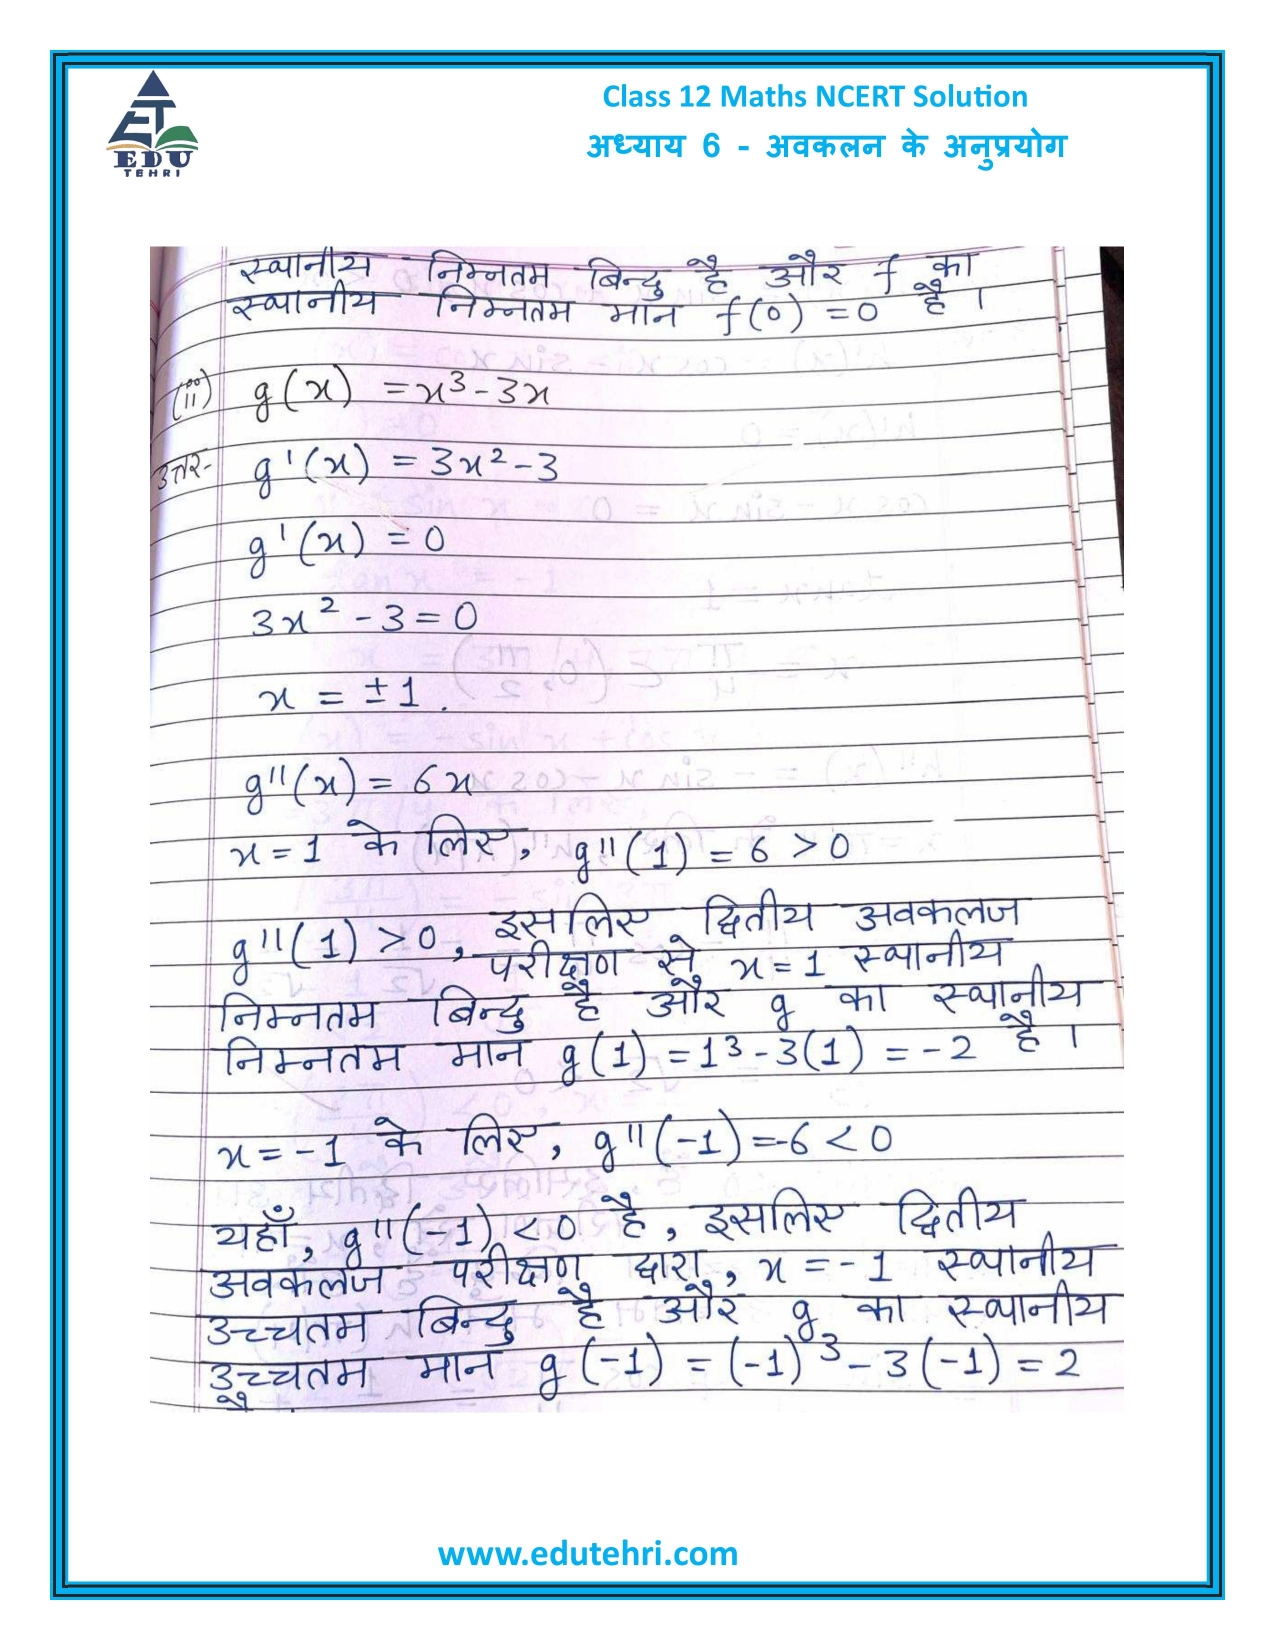 ET
EDU
TEHRI
Class 12 Maths NCERT Solution
अध्याय 6 - अवकलन के अनुप्रयोग
स्थानीय निम्नतम बिन्दु है और f का
स्थानीय निम्नतम मान f(0) = 0 है ।
(ii) g(x) = x³ - 3x
उत्तर- g'(x) = 3x² - 3
g'(x) = 0
3x² - 3 = 0
x = ±1.
g''(x) = 6x
x = 1 के लिए, g''(1) = 6 > 0
g''(1) > 0, इसलिए द्वितीय अवकलज
परीक्षण से x = 1 स्थानीय
निम्नतम बिन्दु है और g का स्थानीय
निम्नतम मान g(1) = 1³ - 3(1) = -2 है ।
x = -1 के लिए, g''(-1) = -6 < 0
यहाँ, g''(-1) < 0 है, इसलिए द्वितीय
अवकलज परीक्षण द्वारा, x = -1 स्थानीय
उच्चतम बिन्दु है और g का स्थानीय
उच्चतम मान g(-1) = (-1)³ - 3(-1) = 2
www.edutehri.com